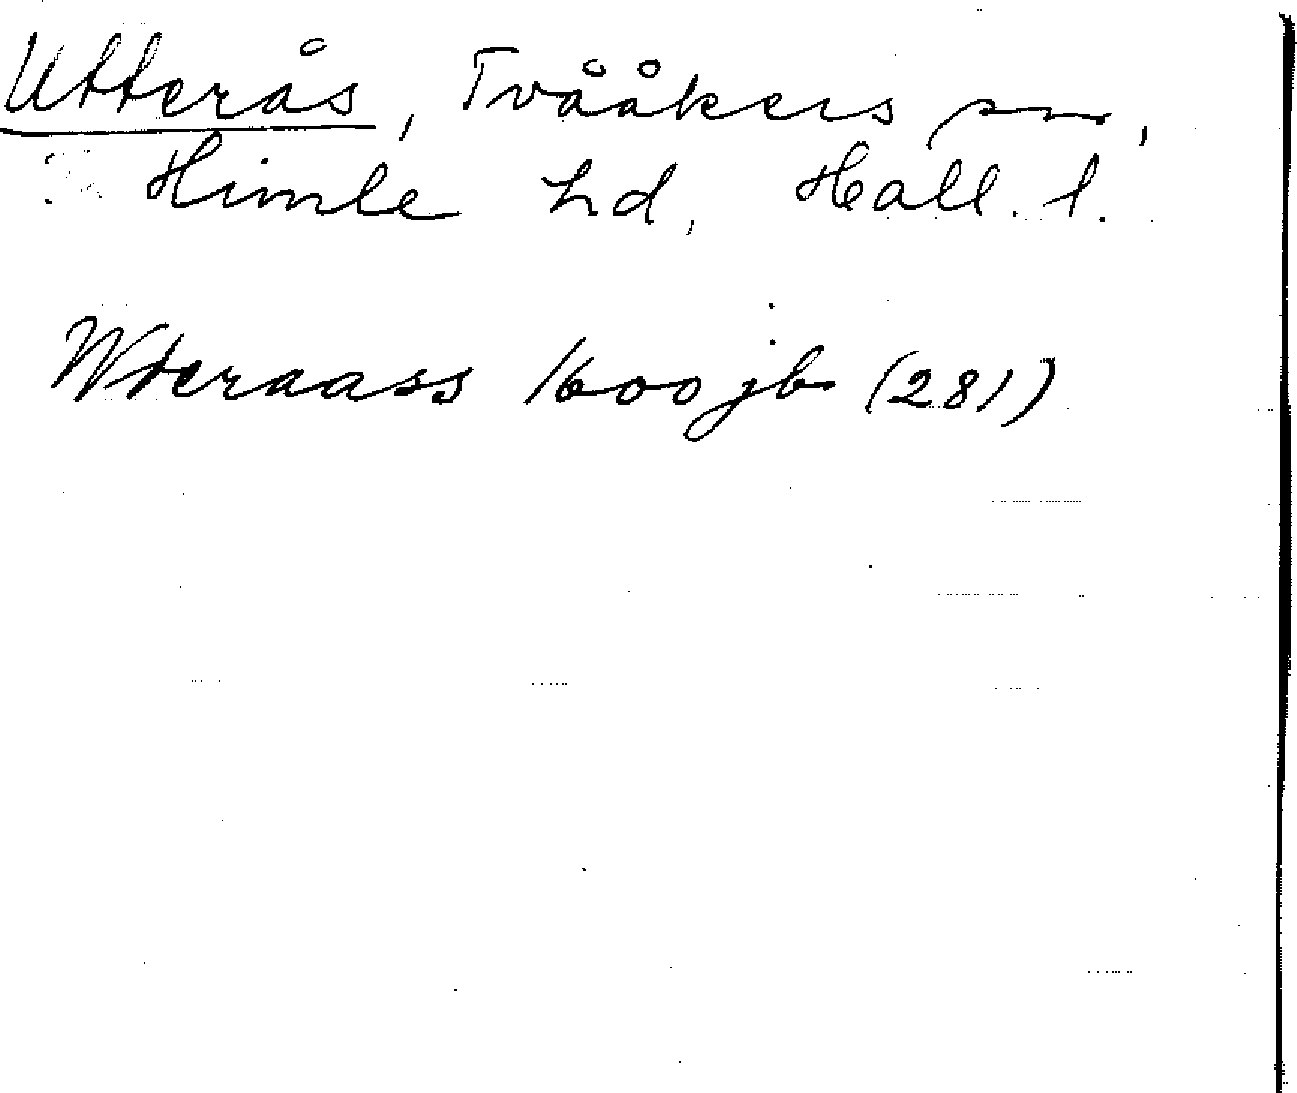 Utterås, Tvååkers sn,
Himle hd, Hall. l.
Wteraass 1600 jb (281)